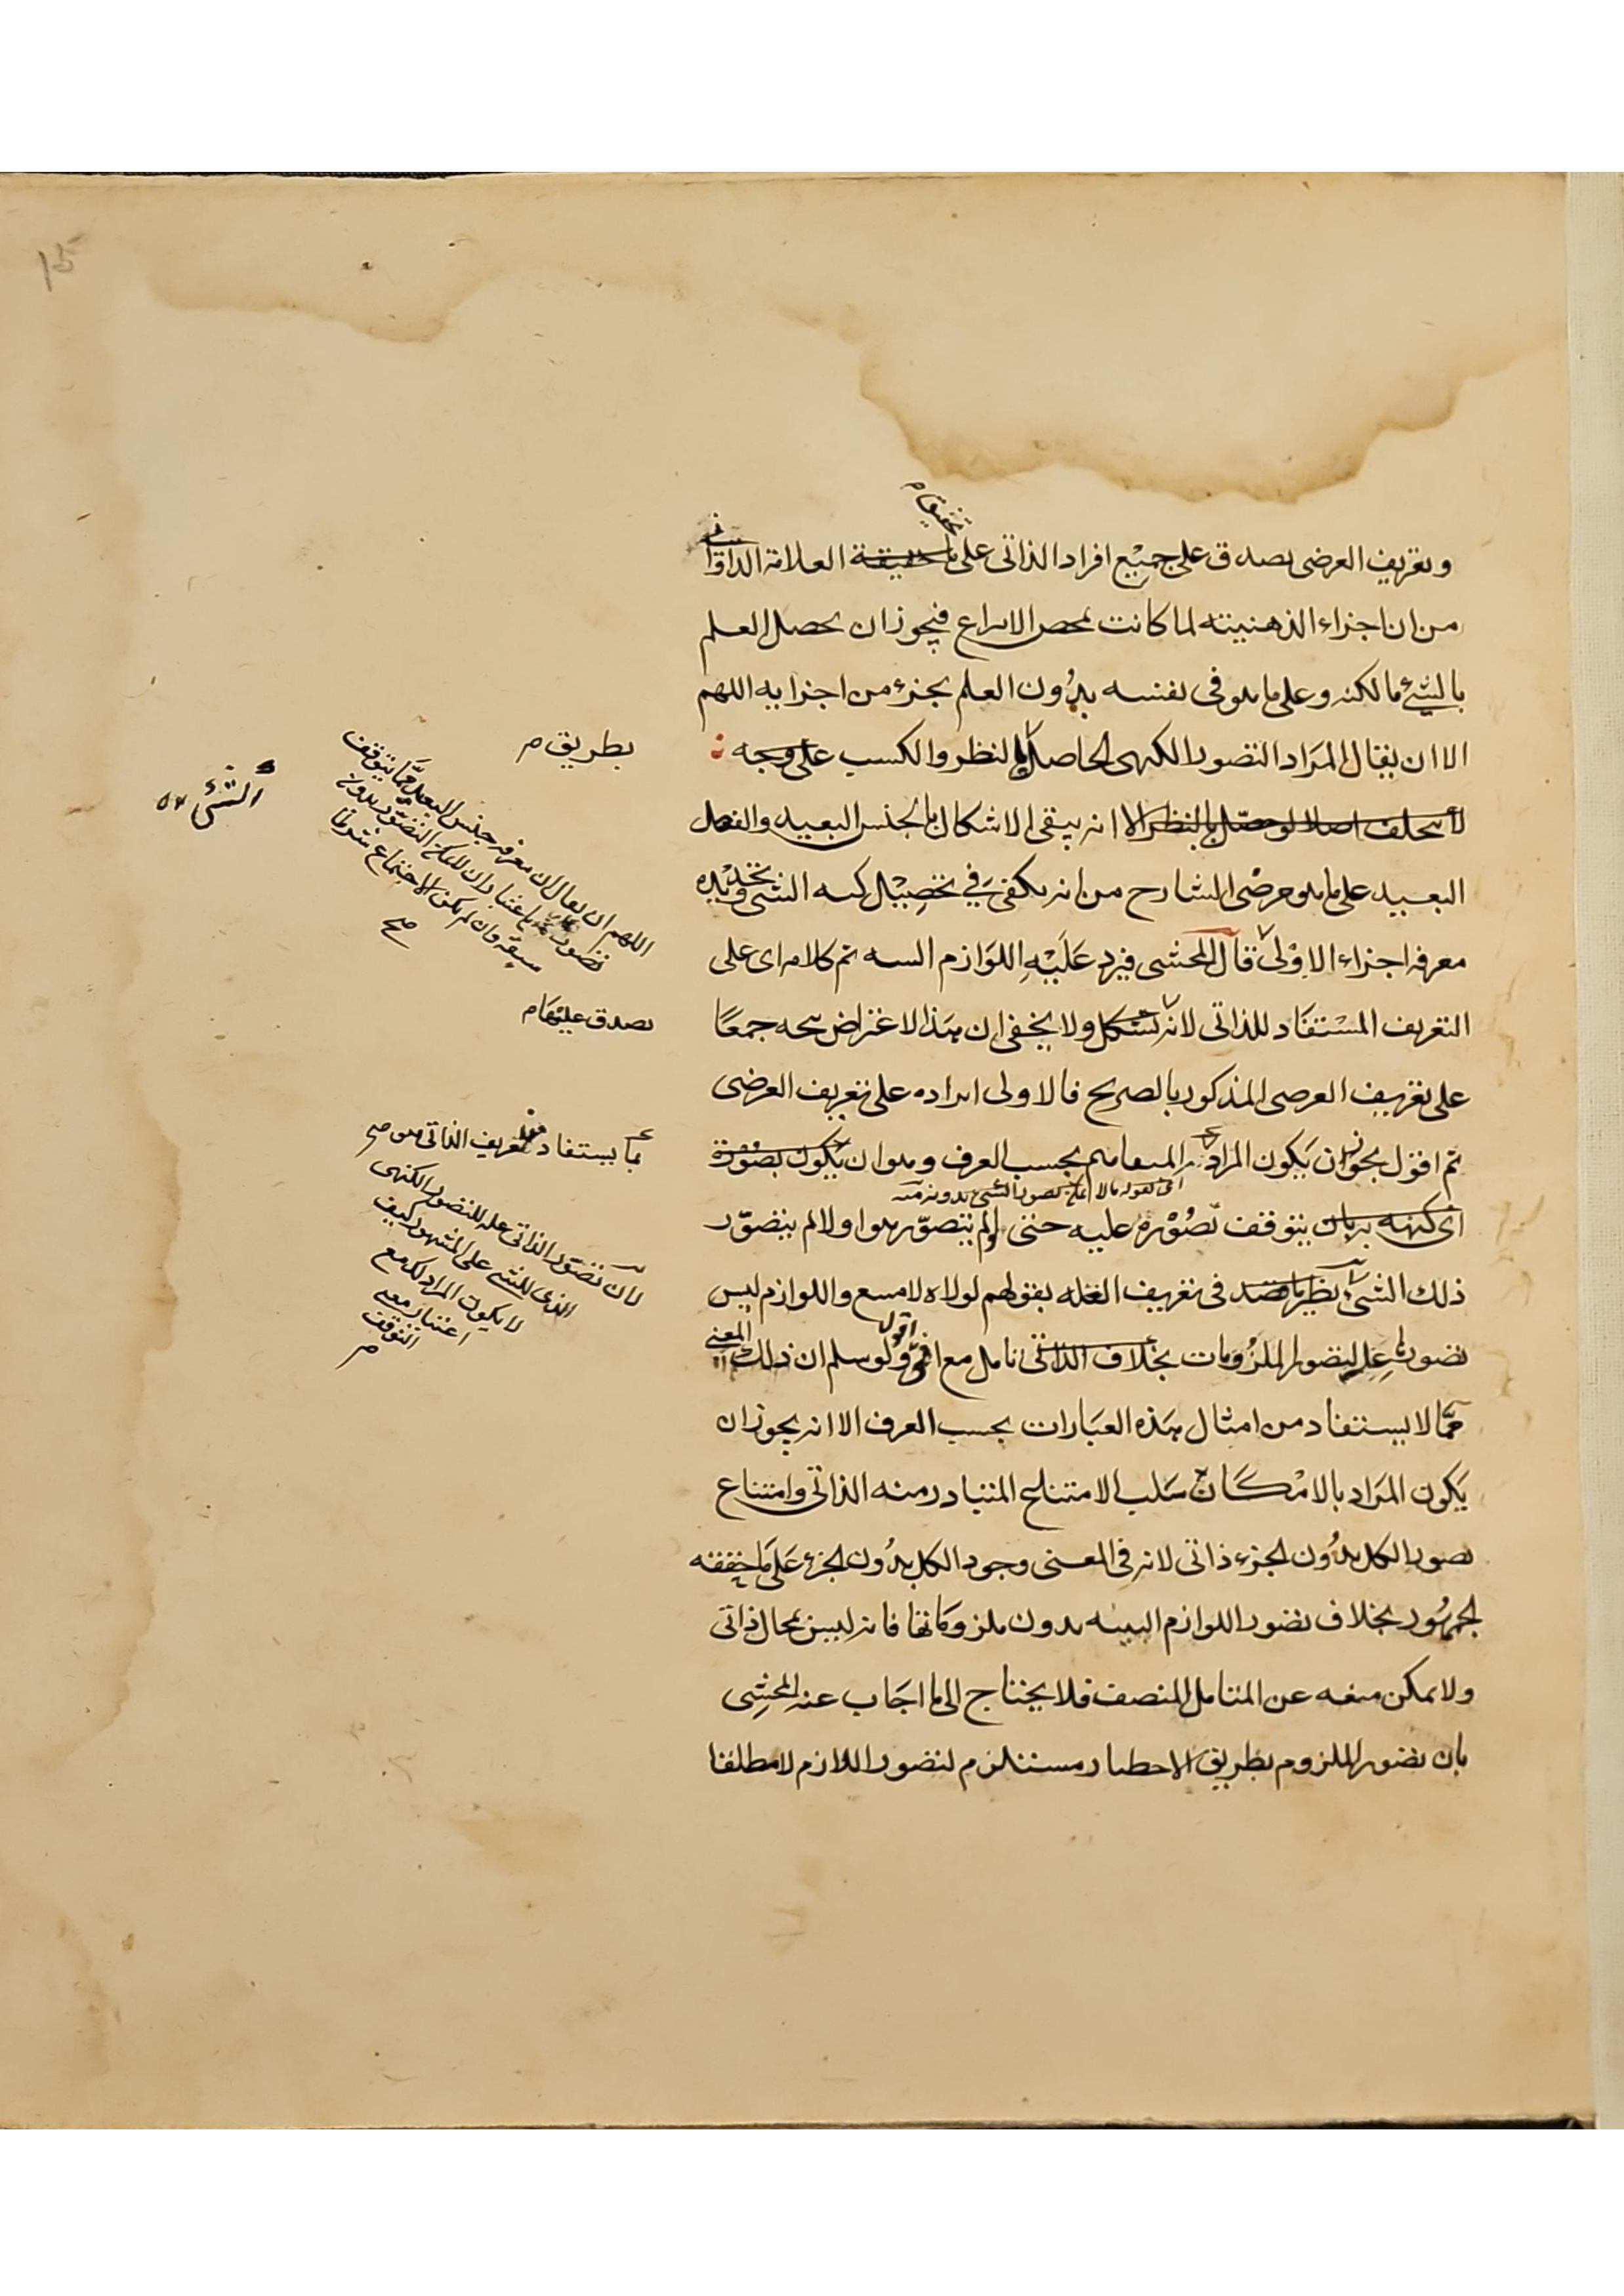 وتعريف العرضى يصدق على جميع افراد الذاتى على ما حقيقة العلامة الدوانى
تحقيق م
من ان اجزاء الذهنيته لما كانت بمحض الانتزاع فيجوز ان يحصل العلم
بالشئ بالكنه وعلى ما هو فى نفسه بدون العلم بجزء من اجزايه اللهم
الا ان يقال المراد التصور الكنهى الحاصل بالنظر والكسب على وجه
لا يتخلف اصلا لو حصل بالنظر الا انه يبقى الاشكال بالجنس البعيد والفصل
البعيد على ما هو مرضى الشارح من انه يكفى فى تحصيل كنه الشئ وتحديده
معرفه اجزاء الاولى قال المحشى فيرد عليه اللوازم البينه تم كلامه اى على
التعريف المستفاد للذاتى لانه يشكل ولا يخفى ان هذا الاعتراض يتجه جمعا
على تعريف العرضى المذكور بالصريح فالاولى ايراده على تعريف العرضى
ثم اقول يجوز ان يكون المراد المتفاهم بحسب العرف وهو ان يكون تصوره
اى كنهه بدونه
يتوقف تصوره عليه حتى لو لم يتصور هو اولا لم يتصور
ذلك الشئ نظير ما قصد فى تعريف العله بقولهم لولاه لامتنع واللوازم ليس
تصورها علة لتصور الملزومات بخلاف الذاتى تامل مع انى اقول ولو سلم ان ذلك المعنى
مما لا يستفاد من امثال هذه العبارات بحسب العرف الا انه يجوز ان
يكون المراد بالامكان سلب الامتناع المتبادر منه الذاتى وامتناع
تصور الكل بدون الجزء ذاتى لانه فى المعنى وجود الكل بدون الجزء على ما حققه
الجمهور بخلاف تصور اللوازم البينه بدون ملزوماتها فانه ليس بمحال ذاتى
ولا يمكن منعه عن المتامل المنصف فلا يحتاج الى ما اجاب عنه المحشى
بان تصور الملزوم بطريق الاخطار مستلزم لتصور اللازم لا مطلقا
بطريق م
الشئ
اللهم ان يقال ان معرفه جنس البعيد مما يتوقف
صح
يصدق عليهما م
بما يستفاد من تعريف الذاتى
لان تصور الذاتى علة للتصور الكنهى
الذى للشئ على المشهور كيف
لا يكون المراد ذلك مع
اعتبار معنى
التوقف
م